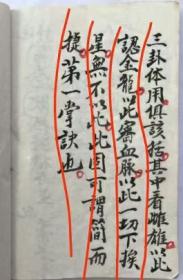 三卦体用俱該括其中看雌雄以此
認金龍以此審血脉以此一切下挨
星無不以此此因可謂簡而
捷第一掌訣也